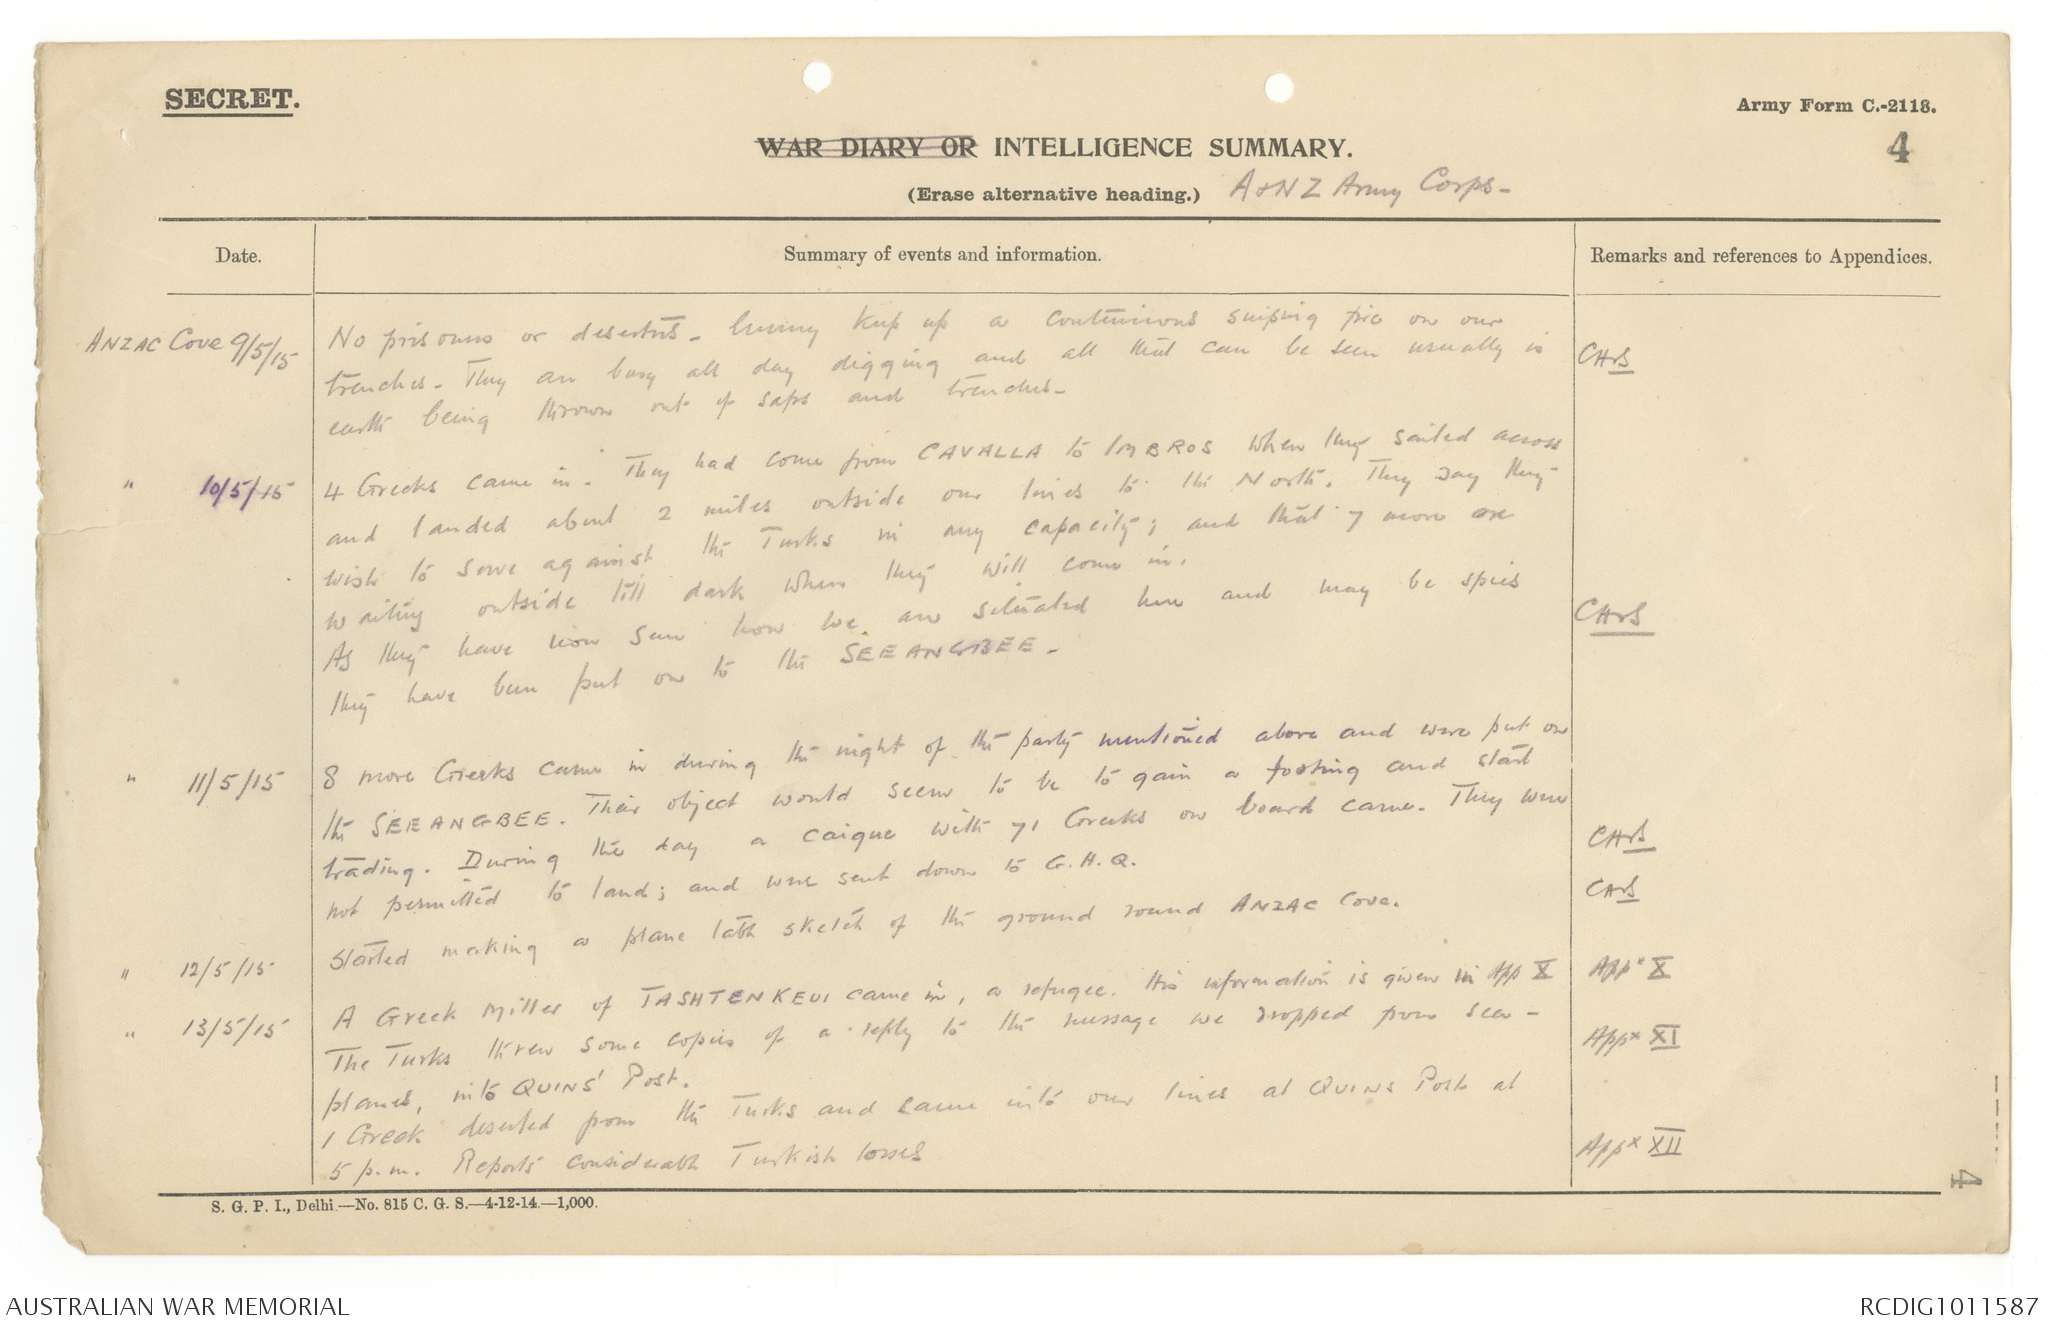 SECRET.
Army Form C.-2118.
4
WAR DIARY OR INTELLIGENCE SUMMARY.
(Erase alternative heading.) A & NZ Army Corps -
Date.
Summary of events and information.
Remarks and references to Appendices.
ANZAC Cove 9/5/15
No prisoners or deserters - Enemy keep up a continuous sniping fire on our
trenches - They are busy all day digging and all that can be seen usually is
earth being thrown out of saps and trenches -
CHS
" 10/5/15
4 Greeks came in. They had come from CAVALLA to IMBROS when they sailed across
and landed about 2 miles outside our lines to the North. They say they
wish to serve against the Turks in any capacity; and that 7 more are
waiting outside till dark when they will come in.
As they have now seen how we are situated here and may be spies
they have been put on to the SEEANGBEE -
CHS
" 11/5/15
8 more Greeks came in during the night of the party mentioned above and were put on
the SEEANGBEE. Their object would seem to be to gain a footing and start
trading. During the day a caique with 71 Greeks on board came. They were
not permitted to land; and were sent down to G.H.Q.
CHS
Started making a plane table sketch of the ground round ANZAC Cove.
CHS
" 12/5/15
A Greek Miller of TASHTENKEUI came in, a refugee. His information is given in App X
Appx X
" 13/5/15
The Turks threw some copies of a reply to the message we dropped from sea -
planes, into QUINS' Post.
Appx XI
1 Greek deserted from the Turks and came into our lines at QUINS Post at
5 p.m. Reports considerable Turkish losses
Appx XII
S. G. P. I., Delhi.—No. 815 C. G. S.—4-12-14.—1,000.
4
AUSTRALIAN WAR MEMORIAL
RCDIG1011587